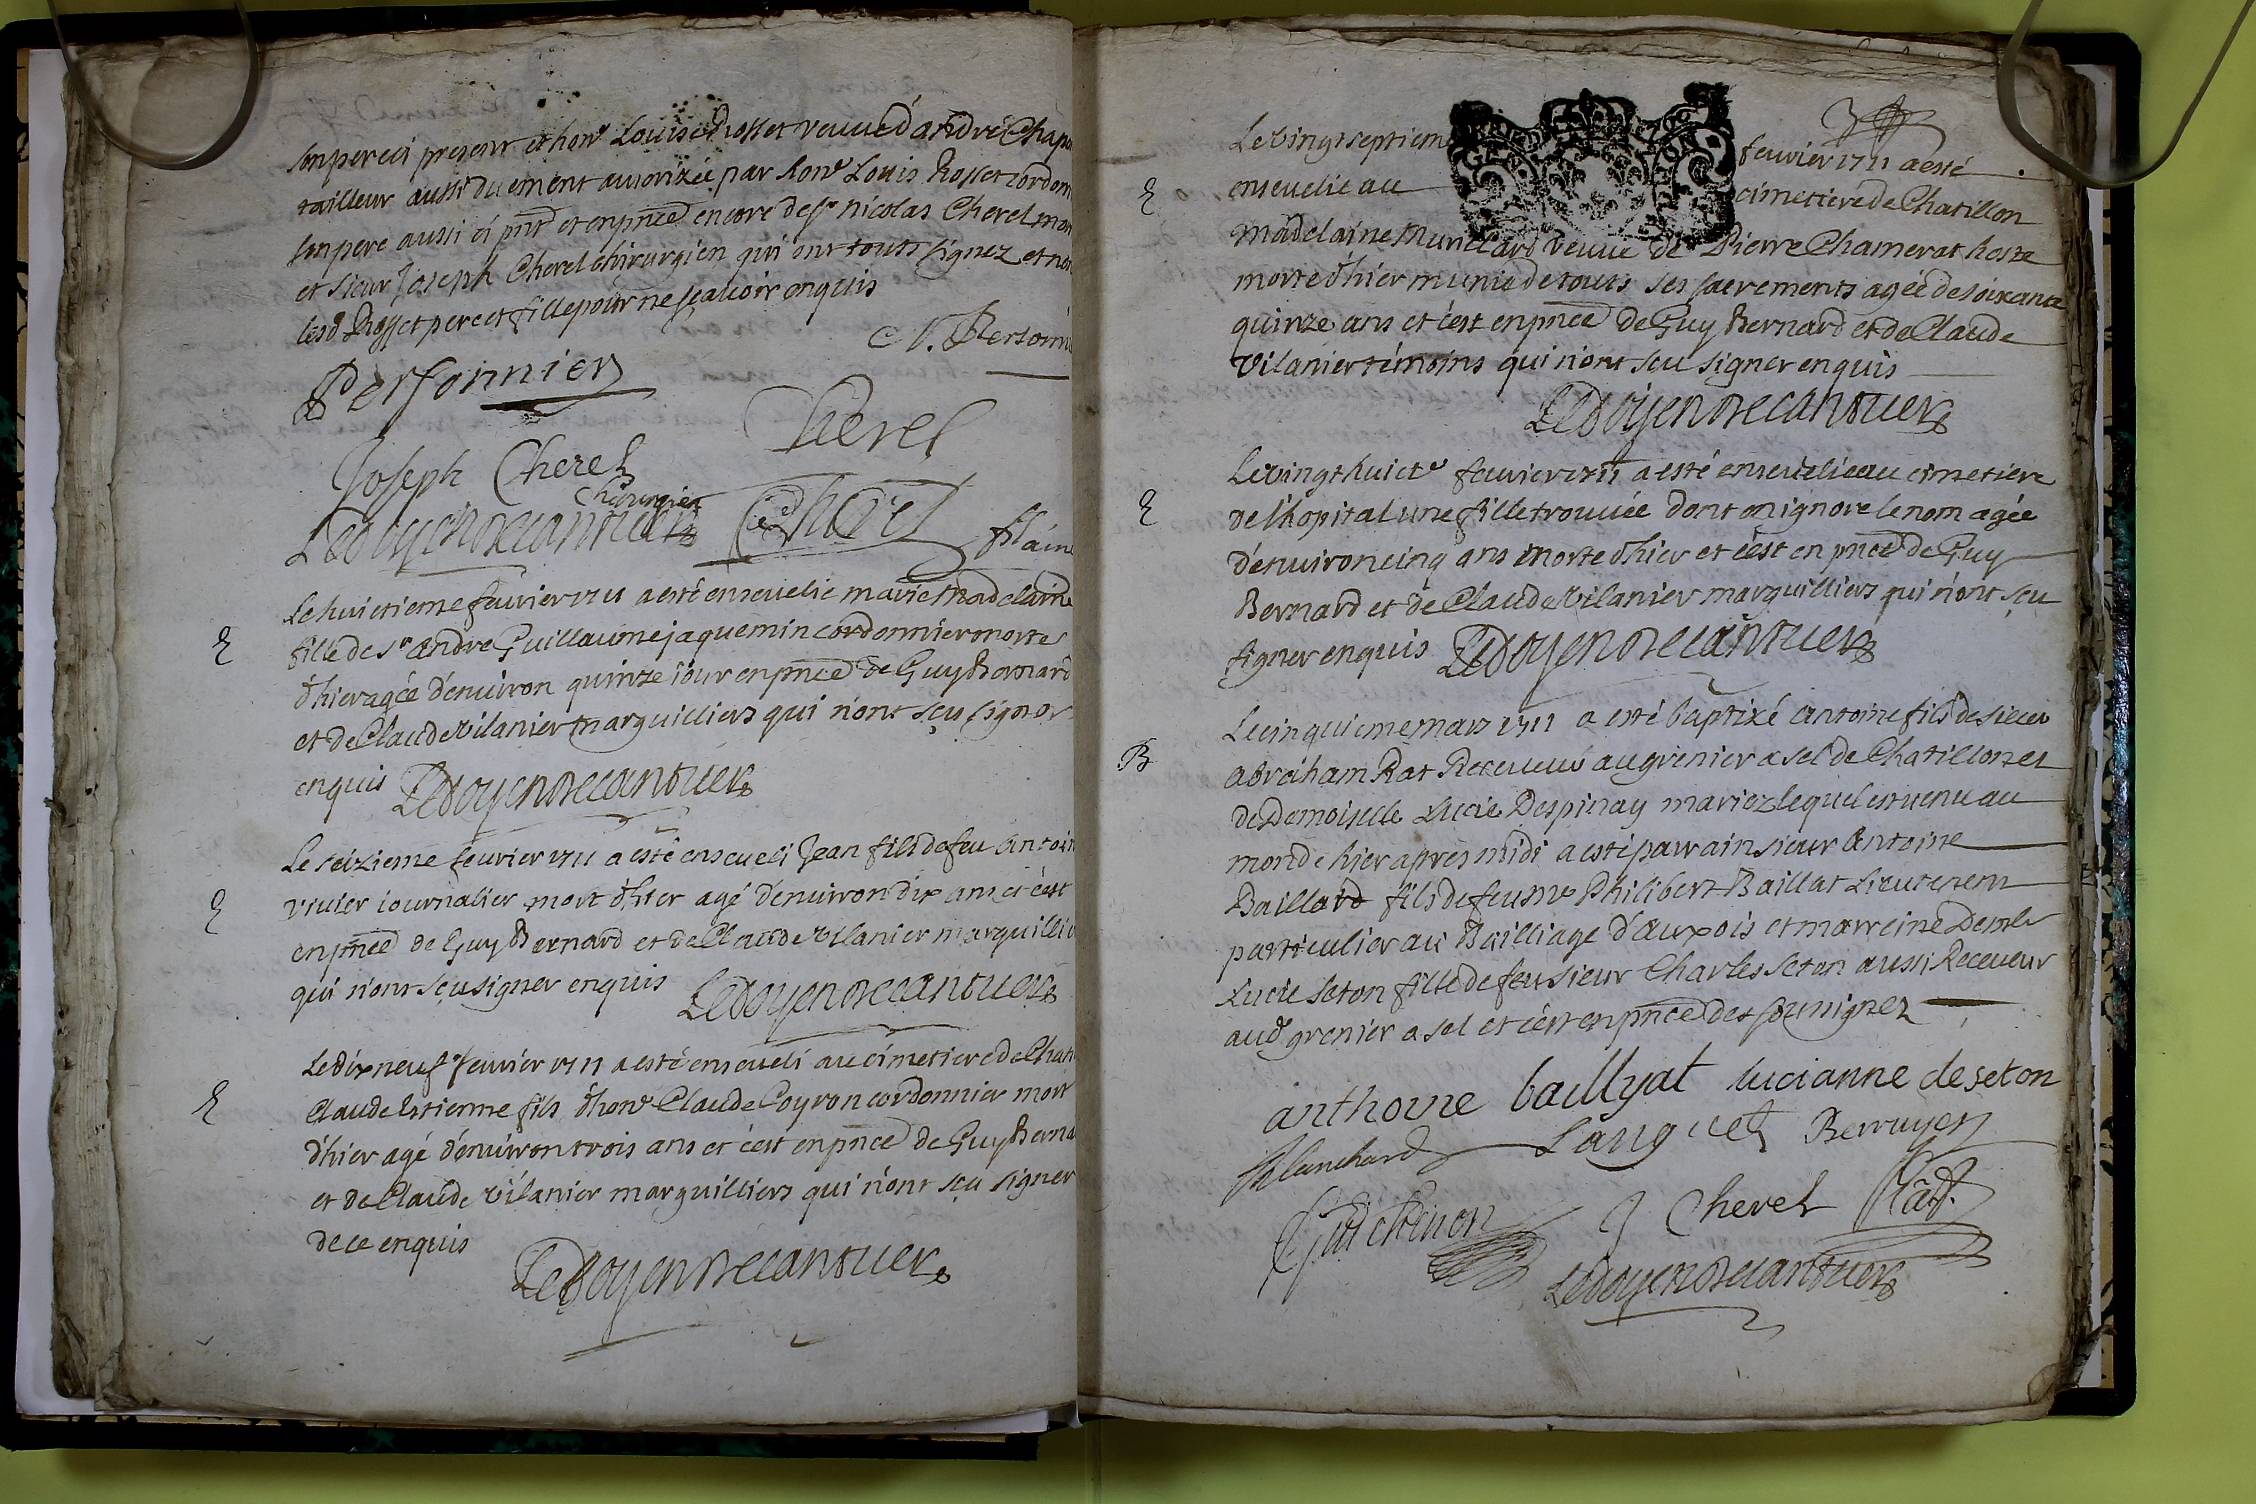 son pere ci present et hon.e Louise Rosset veuve d'andré Chapu
tailleur aussi duement autorizée par hon.e Louis Rosset cordon
son pere aussi ci pnt et en pnce encore de sr nicolas Cherel mar
et sieur Joseph Cherel chirurgien qui ont touts signez et non
lesd Rosset pere et fille pour ne sçavoir enquis
C. N. Personni
Personnier
Cherel
Joseph Cherel
Chirurgien
Ledoyen de cantuer
Cherel
fil aine
E
Le huictieme feuvrier 1711 a esté ensevelie marie Madelaine
fille de sr André Guillaume jaquemin cordonnier morte
d'hier agée d'environ quinze iour en pnce de Guy Bernard
et de Claude Vilanier marguilliers qui n'ont sçu signer
enquis Ledoyen de cantuer
E
Le seizieme feuvrier 1711 a esté enseveli Jean fils de feu antoin
vivier iournalier mort d'hier agé d'environ dix ans et c'est
en pnce de Guy Bernard et de Claude Vilanier marguillie
qui n'ont sçu signer enquis Ledoyen de cantuer
E
Le dix neuf.e feuvrier 1711 a esté enseveli au cimetiere de Chati
Claude Estienne fils d'hon.e Claude Coyron cordonnier mort
d'hier agé d'environ trois ans et c'est en pnce de Guy Berna
et de Claude Vilanier marguilliers qui n'ont sçu signer
de ce enquis
Ledoyen de cantuer
Le vingt septiem feuvrier 1711 a esté
E
ensevelie au cimetiere de Chatillon
Madelaine veuve de Pierre Chamerat hoste
morte d'hier munie de touts ses sacrements agée de soixante
quinze ans et c'est en pnce de Guy Bernard et de Claude
Vilanier témoins qui n'ont sçu signer enquis
Ledoyen de cantuer
E
Le vingt huict.e feuvrier 1711 a esté ensevelie au cimetiere
de l'hopital une fille trouvée dont on ignore le nom agée
d'environ cinq ans morte d'hier et c'est en pnce de Guy
Bernard et de Claude Vilanier marguilliers qui n'ont sçu
signer enquis Ledoyen de cantuer
B
Le cinquieme mars 1711 a esté baptizé Antoine fils de sieur
Abraham Rat Receveur au grenier a sel de Chatillon et
de Demoiselle Lucie Despinay mariez lequel est venu au
monde hier apres midi a esté parrain sieur Antoine
Baillard fils de feu Mr Philibert Baillat Lieutenent
particulier au Bailliage d'Auxois et marreine Demle
Lucie seton fille de feu sieur Charles Seton aussi Receveur
aud grenier a sel et c'est en pnce des soussignez
anthoine baillyat lucianne de seton
Blanchard Languet Berruyer
Guichenon J Cherel Rat.
Ledoyen de cantuer